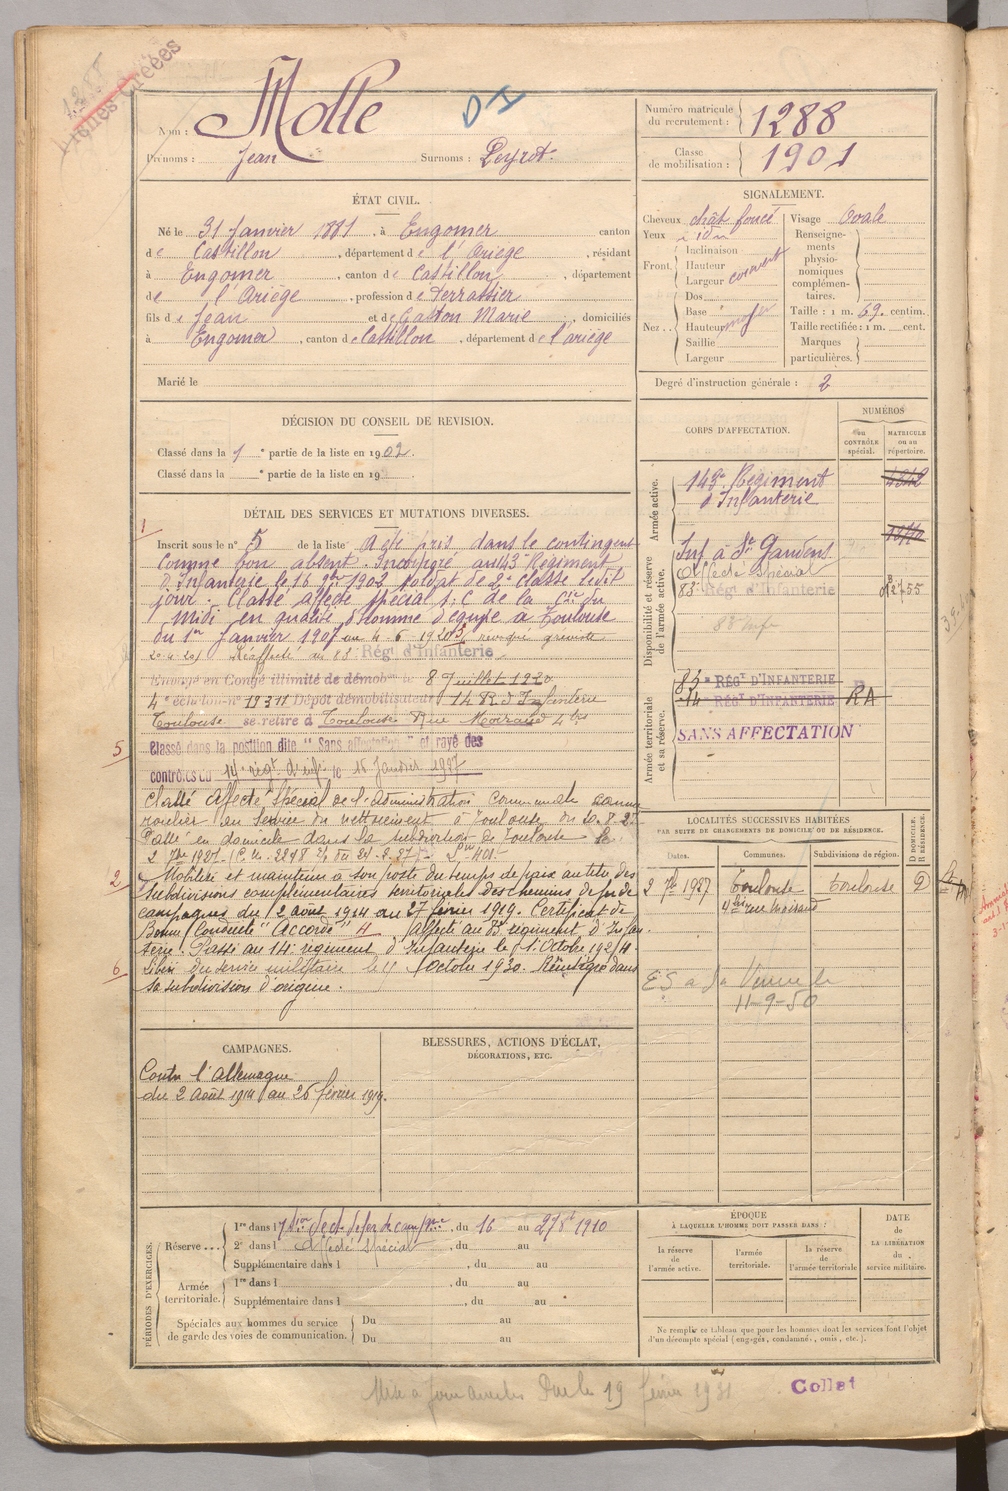 1288
Tables Créées
Nom : Molle
D I
Prénoms : Jean Surnoms : Peyrot.
Numéro matricule du recrutement : 1288
Classe de mobilisation : 1901
ÉTAT CIVIL.
Né le 31 Janvier 1881 . à Engomer canton
de Castillon , département de l'Ariège , résidant
à Engomer , canton de Castillon , département
de l'Ariège , profession de Terrassier
fils de Jean et de Marie , domiciliés
à Engomer , canton de Castillon , département de l'ariège
Marié le
SIGNALEMENT.
Cheveux chât foncé
Yeux idm
Front.
Inclinaison
Hauteur
Largeur
Nez ..
Dos
Base
Hauteur moyen
Saillie
Largeur
Visage Ovale
Renseignements physionomiques complémentaires.
Taille : 1 m. 69. centim.
Taille rectifiée : 1 m. cent.
Marques particulières.
Degré d'instruction générale : 2
DÉCISION DU CONSEIL DE REVISION.
Classé dans la 1 e partie de la liste en 1902.
Classé dans la e partie de la liste en 19
CORPS D'AFFECTATION.
NUMÉROS
au CONTRÔLE spécial.
MATRICULE ou au répertoire.
Armée active.
143e Régiment
d'Infanterie
Disponibilité et réserve de l'armée active.
Inf à St Gaudens
Affecté Spécial
83e Régt d'Infanterie
2755
Armée territoriale et sa réserve.
83e RÉGt D'INFANTERIE
14 RÉGt D'INFANTERIE RA
SANS AFFECTATION
DÉTAIL DES SERVICES ET MUTATIONS DIVERSES.
1
Inscrit sous le n° 5 de la liste A été pris dans le contingent
comme bon absent. Incorporé au 143e Régiment
d'Infanterie le 16 9bre 1902 Soldat de 2e classe ledit
jour. Classé affecté spécial s. c de la Cie du
Midi en qualité d'homme d'équipe à Toulouse
du 1er Janvier 1907 au 4-6 1920 révoqué gréviste
Réaffecté au 83 Régt d'Infanterie
Envoyé en Congé illimité de démob le 8 Juillet 1920
4e échelon n° 19311 Dépôt démobilisateur 14 R d'Infanterie
Toulouse se retire à Toulouse Rue Moiraud 4 bis
5
Classé dans la position dite " Sans affectation " et rayé des
contrôles du 14e régt d'inf. le 15 Janvier 1927
Classé Affecté Spécial de l'Administration Communale comme
roulier au service du nettoiement à Toulouse du 20-8-27
Passé en domicile dans la subdivision de Toulouse le
2 7bre 1927
2
Mobilisé et maintenu à son poste du temps de paix au titre des
subdivisions complémentaires territoriales des chemins de fer de
campagnes du 2 août 1914 au 27 février 1919. Certificat de
Bonne Conduite "Accordé" 4 Affecté au 83e régiment d'Infan-
terie. Passé au 14e régiment d'Infanterie le 1er Octobre 1924.
6
Libéré du service militaire le Octobre 1930. Réintégré dans
sa subdivision d'origine.
LOCALITÉS SUCCESSIVES HABITÉES
PAR SUITE DE CHANGEMENTS DE DOMICILE OU DE RÉSIDENCE.
Dates.
Communes.
Subdivisions de région.
D DOMICILE. R RÉSIDENCE.
2 7bre 1927 Toulouse Toulouse D
4 bis rue Moiraud
11-9-50
CAMPAGNES.
Contre l'Allemagne
du 2 Août 1914 au 26 février 1919.
BLESSURES, ACTIONS D'ÉCLAT,
DÉCORATIONS, ETC.
PÉRIODES D'EXERCICES.
Réserve ...
1re dans l , du 16 au 27 1910
2e dans l Affecté Spécial , du au
Supplémentaire dans l , du au
Armée territoriale.
1re dans l , du au
Supplémentaire dans l , du au
Spéciales aux hommes du service de garde des voies de communication.
Du au
Du au
ÉPOQUE
À LAQUELLE L'HOMME DOIT PASSER DANS :
la réserve de l'armée active.
l'armée territoriale.
la réserve de l'armée territoriale
DATE DE LA LIBÉRATION du service militaire.
Ne remplir ce tableau que pour les hommes dont les services font l'objet
d'un décompte spécial (engagés, condamnés, omis, etc.).
Mise à jour 19 février 1931
Collat